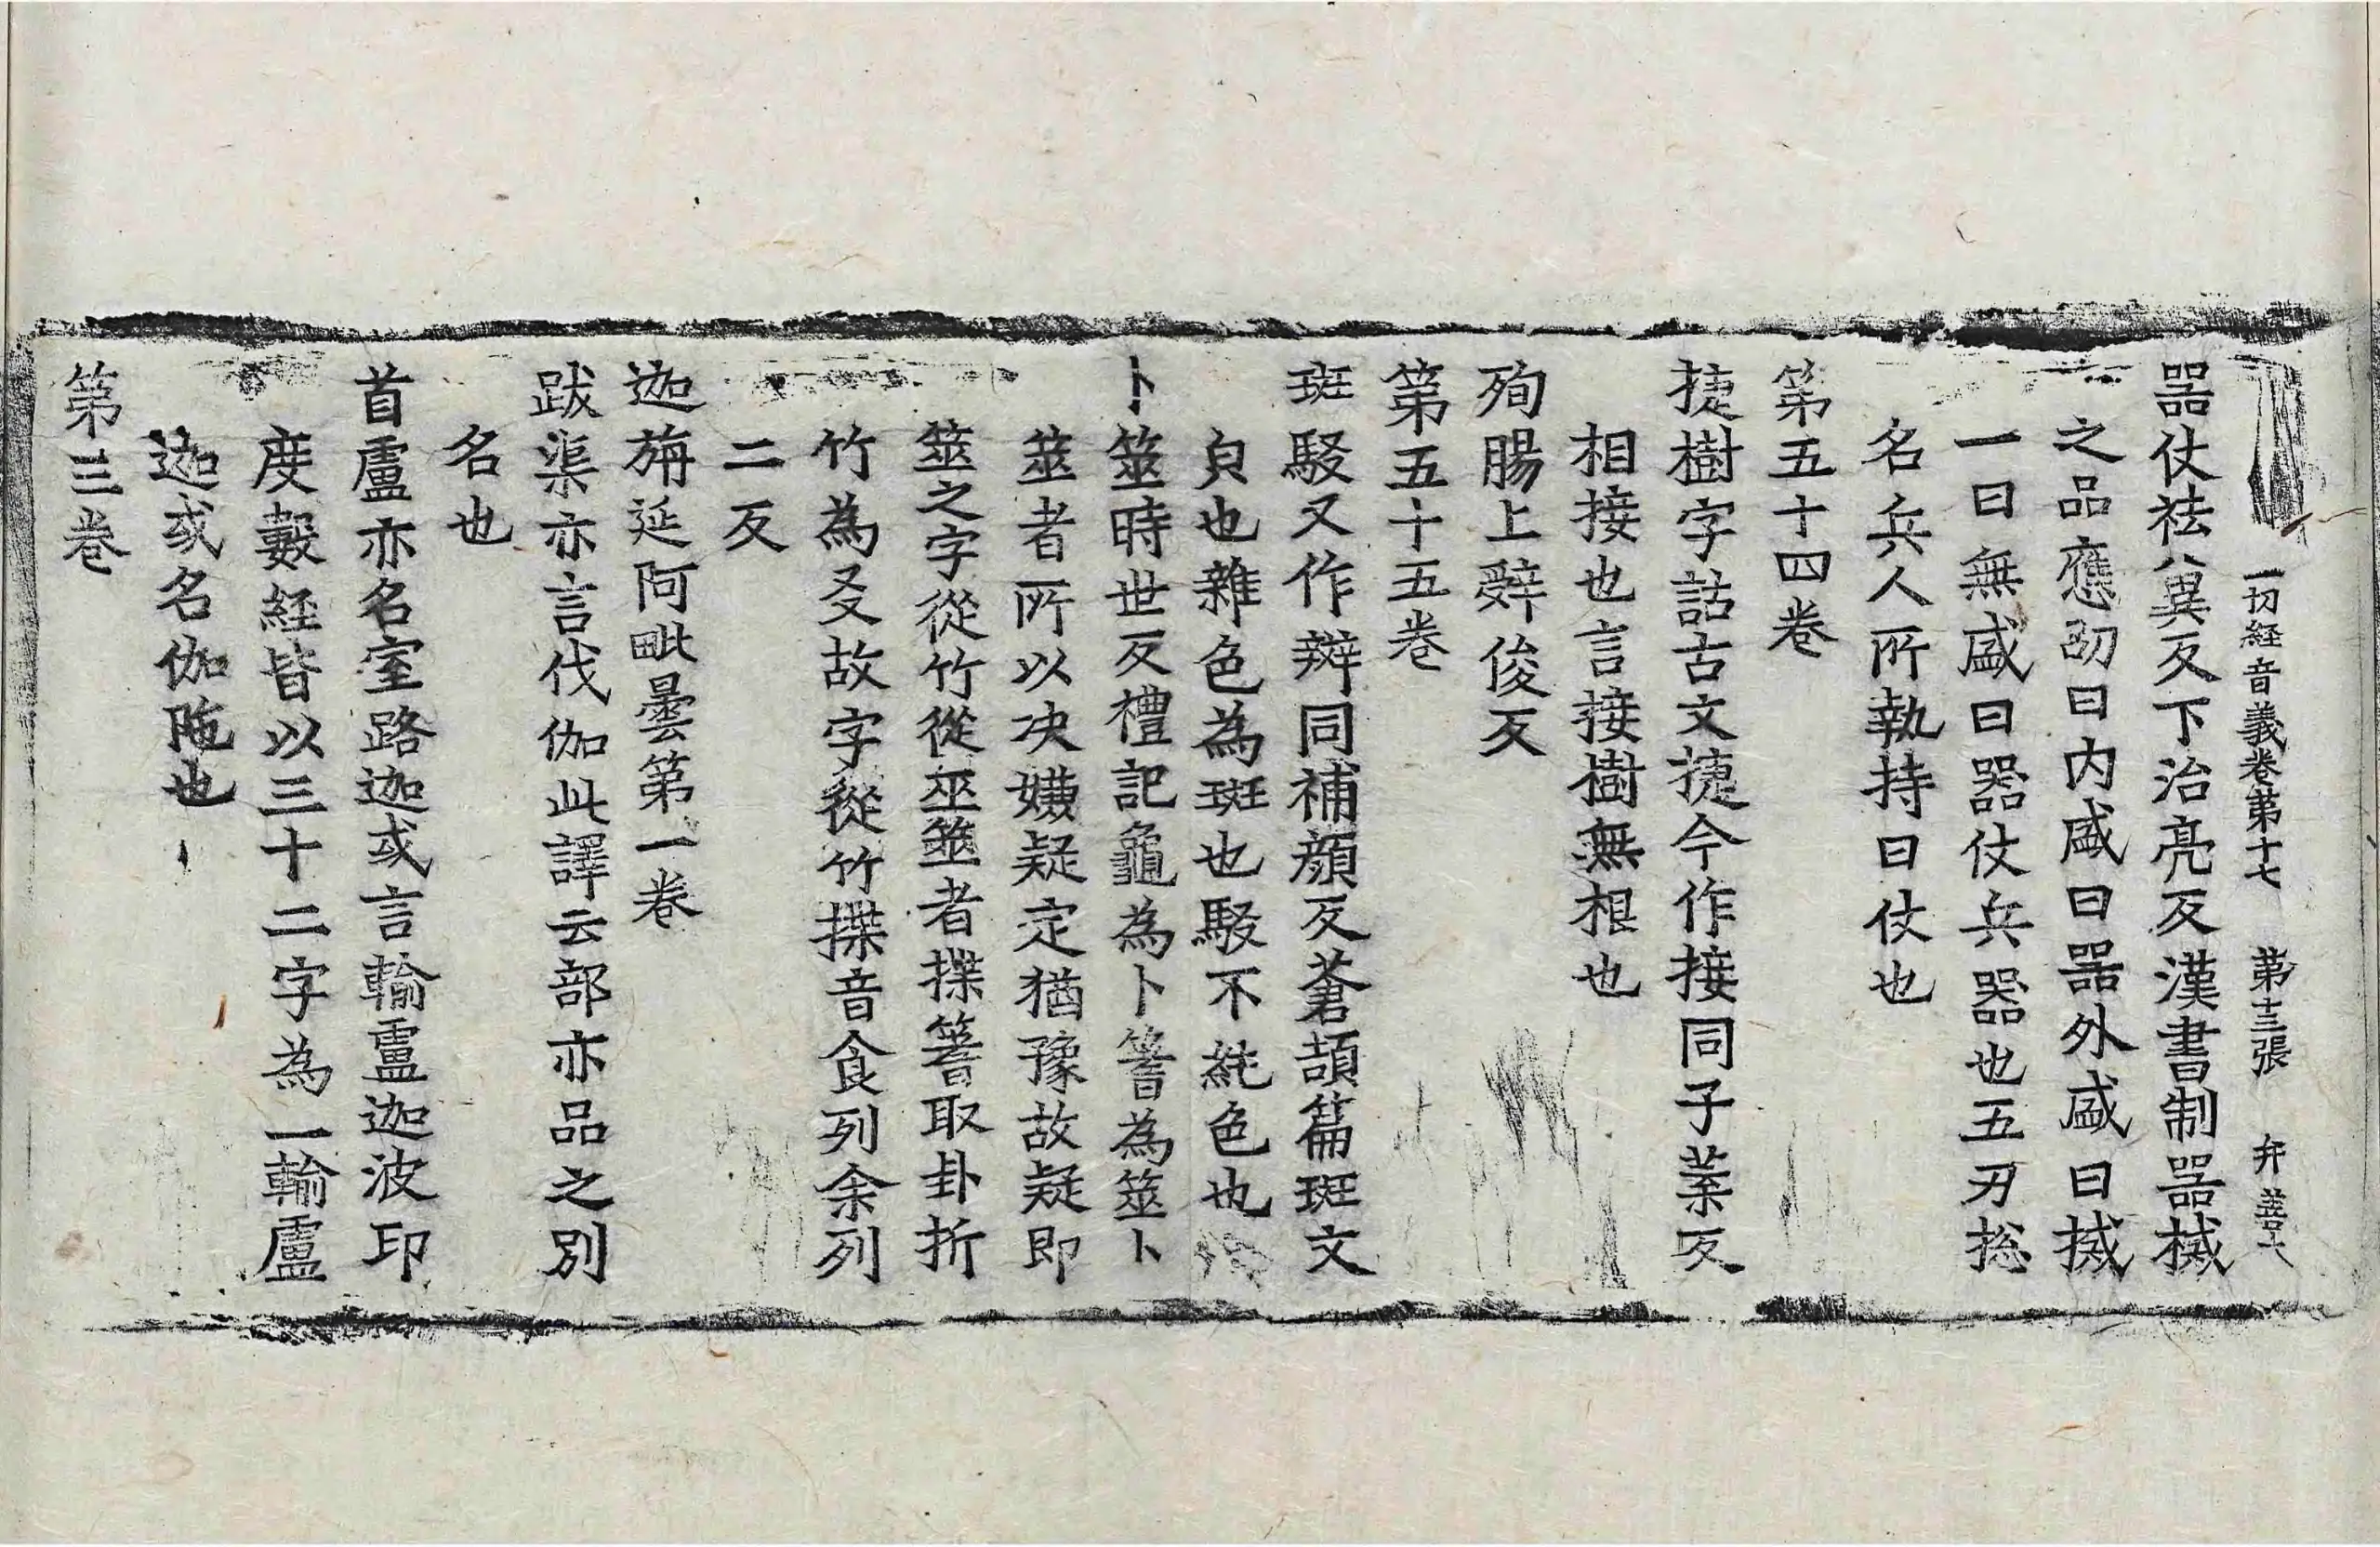 一切経音義卷第十七 第十三張 弁
器仗袪兾反下治亮反漢書制器械
之品應劭曰内盛曰器外盛曰械
一曰無盛曰器仗兵器也五刃捴
名兵人所執持曰仗也
第五十四卷
捷樹字詁古文捷今作接同子葉反
相接也言接樹無根也
殉腸上辤俊反
第五十五卷
斑駁又作辬同補顔反蒼頡篇斑文
皃也雜色為斑也駁不純色也
卜筮時世反禮記龜為卜蓍為筮卜
筮者所以决嫌疑定猶豫故疑即
筮之字從竹從巫筮者揲蓍取卦折
竹為爻故字從竹揲音食列余列
二反
迦旃延阿毗曇第一卷
跋渠亦言伐伽此譯云部亦品之別
名也
首盧亦名室路迦或言輸盧迦波印
度數経皆以三十二字為一輸盧
迦或名伽陁也
第三卷